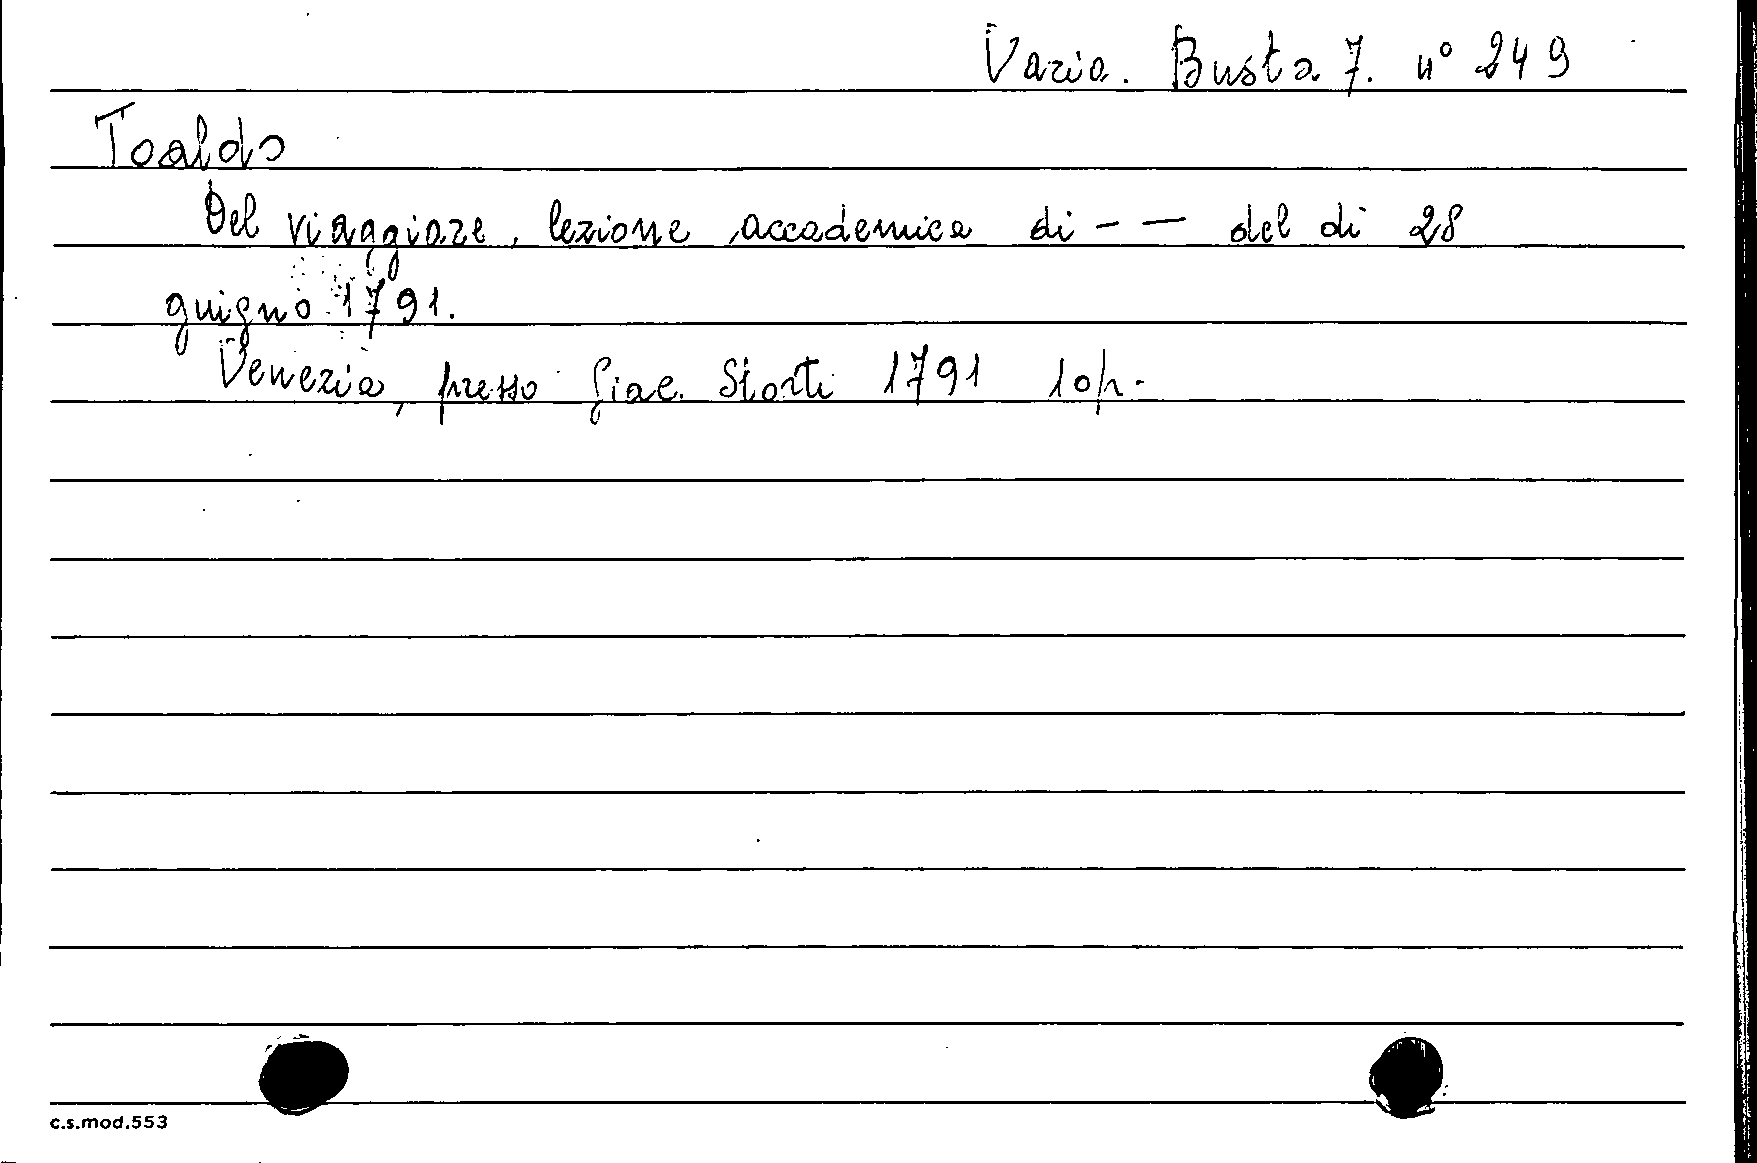 Varia. Busta 7. n° 249
Toaldo
Del viaggiare, lezione accademica di - — del di 28
guigno 1791.
Venezia, presso Giac. Storti 1791 10 p.
c.s.mod.553